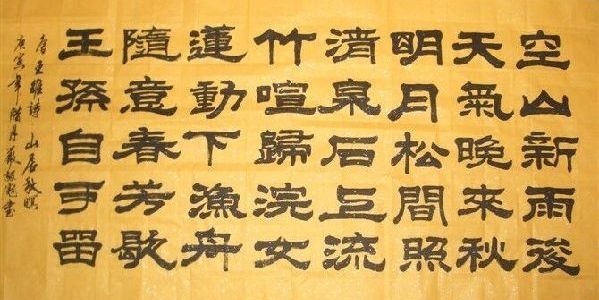 空山新雨後
天氣晚來秋
明月松間照
清泉石上流
竹喧歸浣女
蓮動下漁舟
隨意春芳歇
王孫自可留
唐王維詩 山居秋暝
庚寅年 書